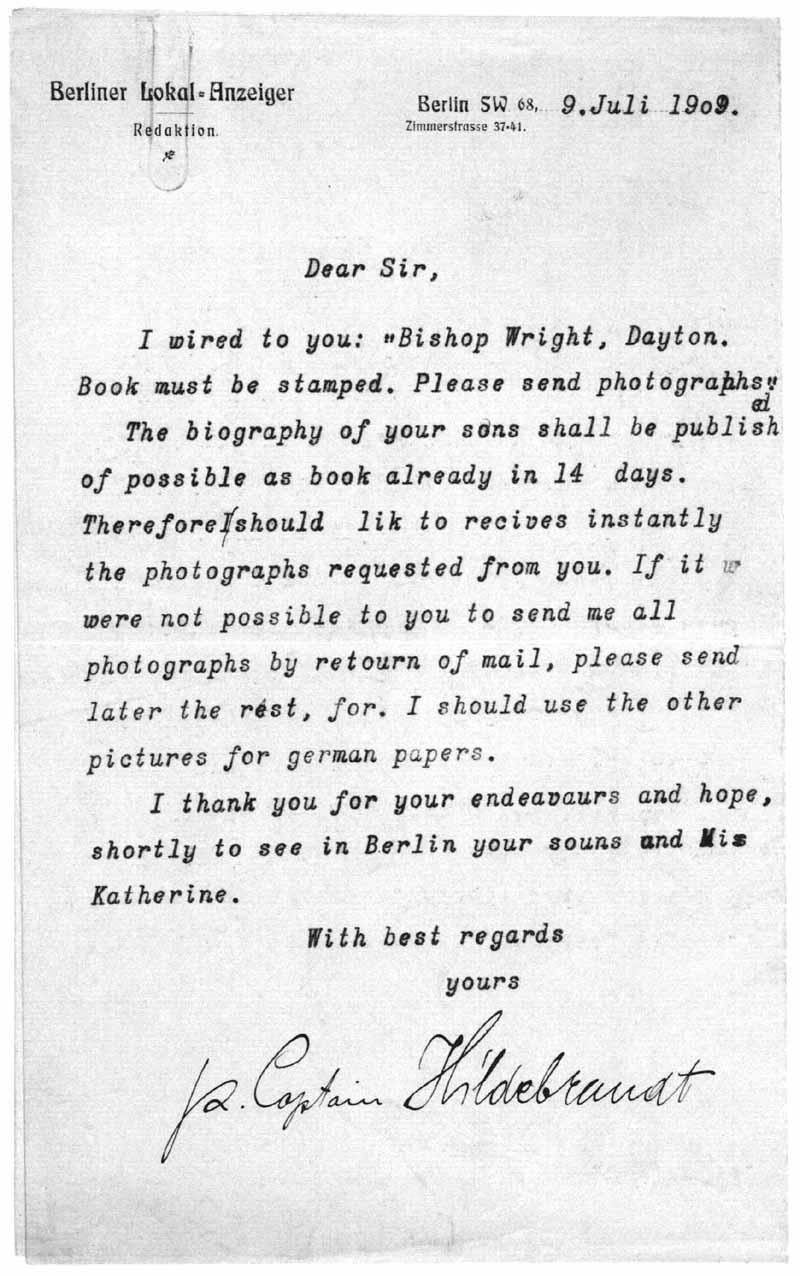 Berliner Lokal=Anzeiger
Redaktion.
Berlin SW 68, 9.Juli 1909.
Zimmerstrasse 37-41.
Dear Sir,
I wired to you: "Bishop Wright, Dayton.
Book must be stamped. Please send photographs."
ed
The biography of your sons shall be publish
of possible as book already in 14 days.
Therefore I should lik to recives instantly
the photographs requested from you. If it w
were not possible to you to send me all
photographs by retourn of mail, please send
later the rést, for. I should use the other
pictures for german papers.
I thank you for your endeavaurs and hope,
shortly to see in Berlin your souns and Mis
Katherine.
With best regards
yours
Captain Hildebrandt